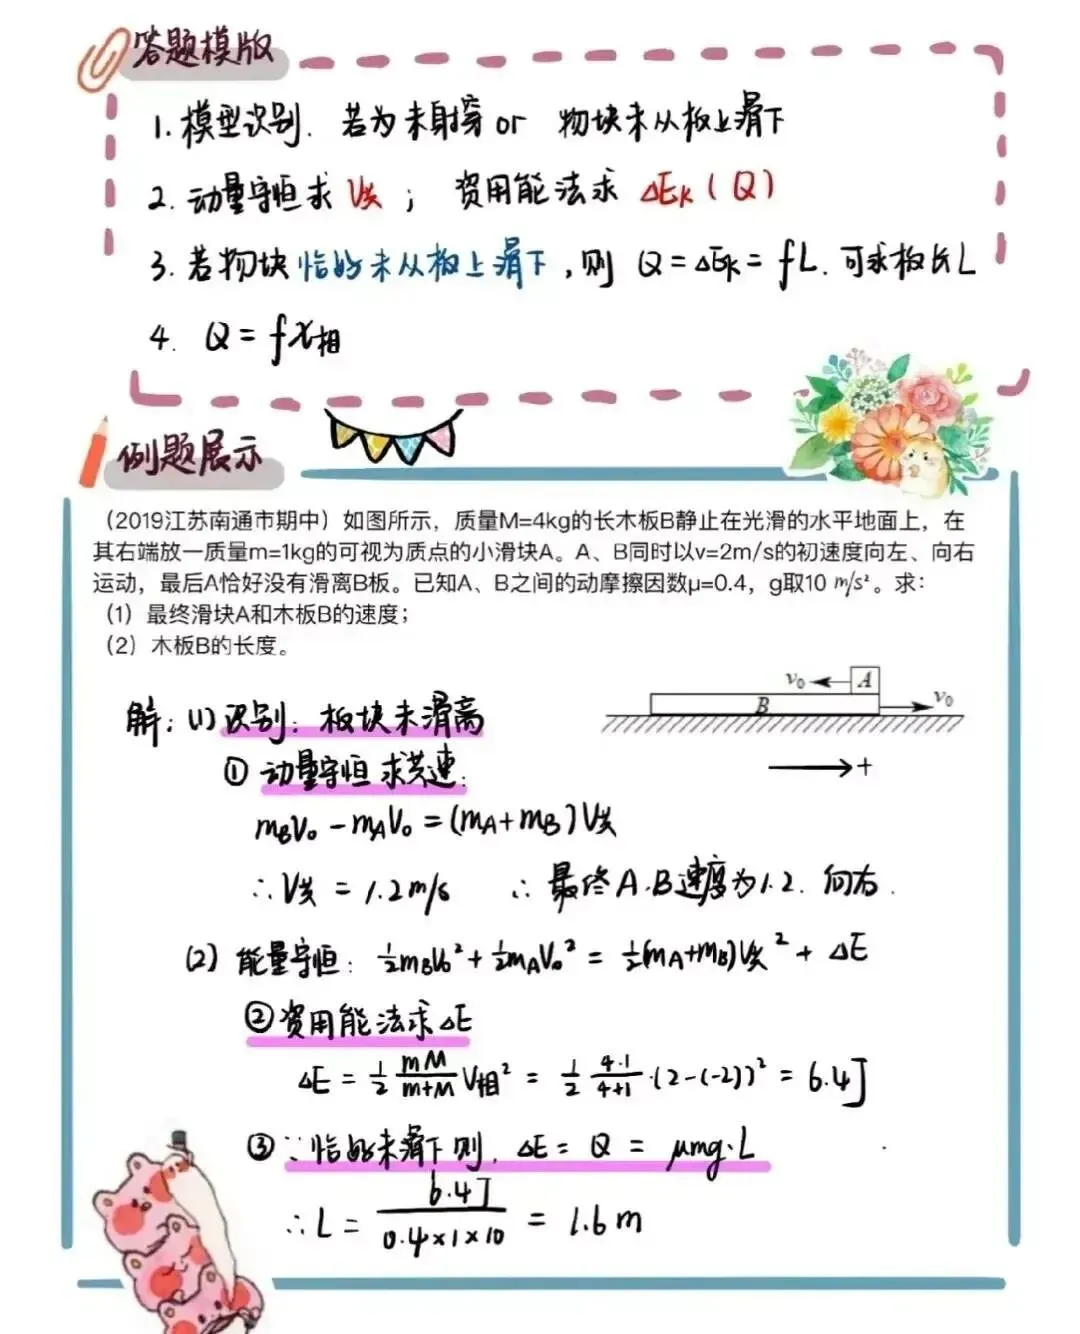 答题模版
1. 模型识别. 若为未射穿 or 物块未从板上滑下
2. 动量守恒求 V共 ; 资用能法求 ΔEk (Q)
3. 若物块恰好未从板上滑下,则 Q=ΔEk=fL.可求板长L
4. Q=fx相
例题展示
（2019江苏南通市期中）如图所示，质量M=4kg的长木板B静止在光滑的水平地面上，在
其右端放一质量m=1kg的可视为质点的小滑块A。A、B同时以v=2m/s的初速度向左、向右
运动，最后A恰好没有滑离B板。已知A、B之间的动摩擦因数μ=0.4，g取10 m/s²。求：
（1）最终滑块A和木板B的速度；
（2）木板B的长度。
v₀ A
B v₀
解: (1) 识别: 板块未滑离
+
① 动量守恒求共速:
mBV₀-mAV₀=(mA+mB)V共
∴V共=1.2m/s ∴最终A.B速度为1.2. 向右.
(2) 能量守恒: ½mBV₀²+½mAV₀²=½(mA+mB)V共²+ΔE
②资用能法求ΔE
ΔE=½ mM/m+M V相²=½ 4·1/4+1·(2-(-2))²=6.4J
③∵恰好未滑下则. ΔE=Q=μmg·L
∴L=6.4J/0.4×1×10=1.6m